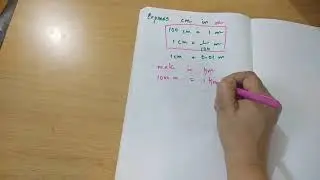 Express cm in m
100 cm = 1 m
1 cm = 1/100 m
1 cm = 0.01 m
in km
1000 m = 1 km